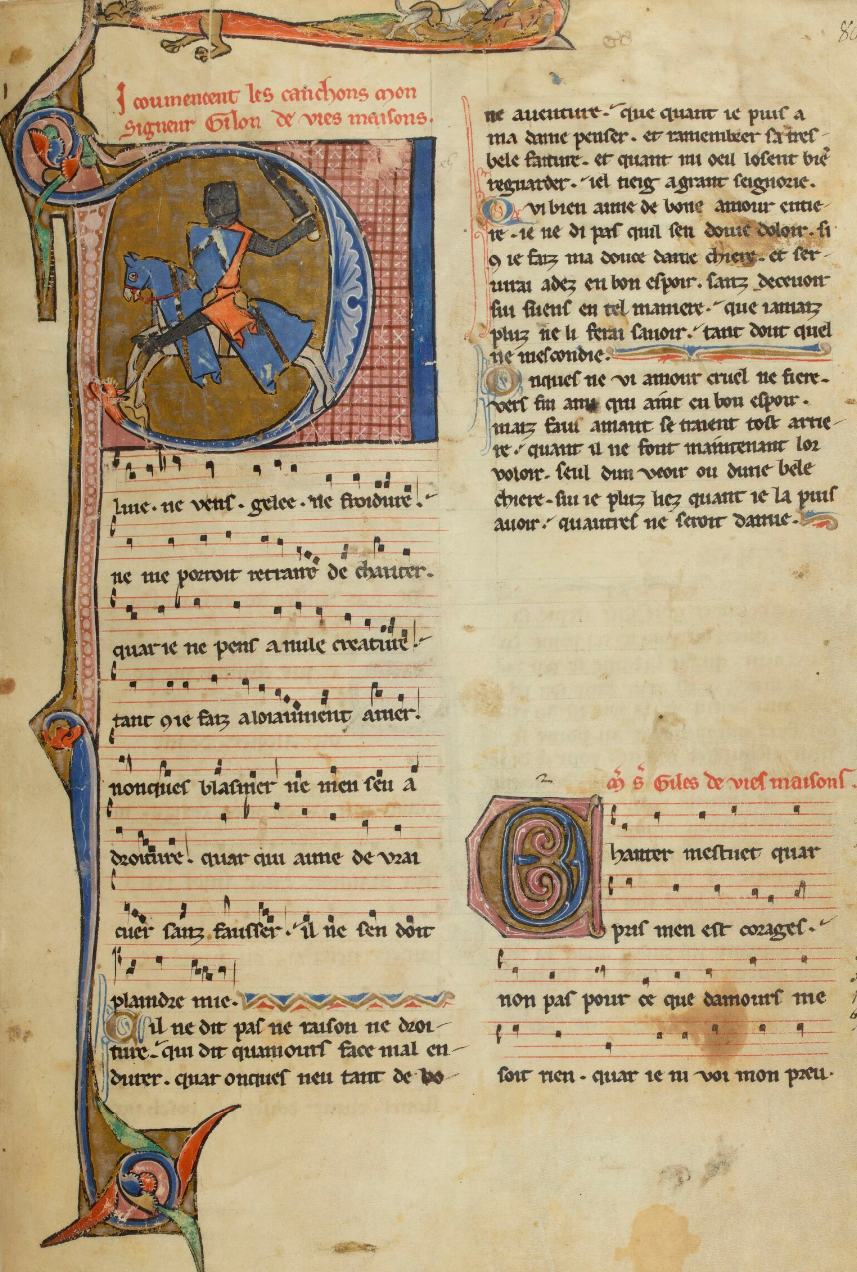 I coumencent les canchons mon
signeur Gilon de vies maisons.
luie. ne vens. gelee. ne froidure.
ne me porroit retraire de chanter.
quar ie ne pens a nule creature
tant 9 ie faiz a loiaument amer.
nonques blasmer ne men seu a
droiture. quar qui aime de vrai
cuer sanz fausser. il ne sen doit
plaindre mie.
Cil ne dit pas ne raison ne droi-
ture. qui dit quamours face mal en-
durer. quar onques neu tant de bo-
ne auenture. que quant ie puis a
ma dame penser. et ramembrer sa tres
bele faiture. et quant mi oeil losent bie
reguarder. iel tieig a grant seignorie.
Qvi bien aime de bone amour entie-
re. ie ne di pas quil sen doiue doloir. si
9 ie faiz ma douce dame chiere. et ser-
uirai adez en bon espoir. sanz deceuoir
sui suens en tel maniere. que iamaiz
pluz ne li ferai sauoir. tant dout quel
ne mescondie.
Onques ne vi amour cruel ne fiere.
vers fin ami qui aint en bon espoir.
maiz faus amant se traient tost arrie-
re. quant il ne font maintenant lor
voloir. seul dun veoir ou dune bele
chiere. sui ie pluz liez quant ie la puis
auoir. quautres ne seroit damie.
m s Giles de vies maisons.
Chanter mestuet quar
pris men est corages.
non pas pour ce que damours me
soit rien. quar ie ni voi mon preu.